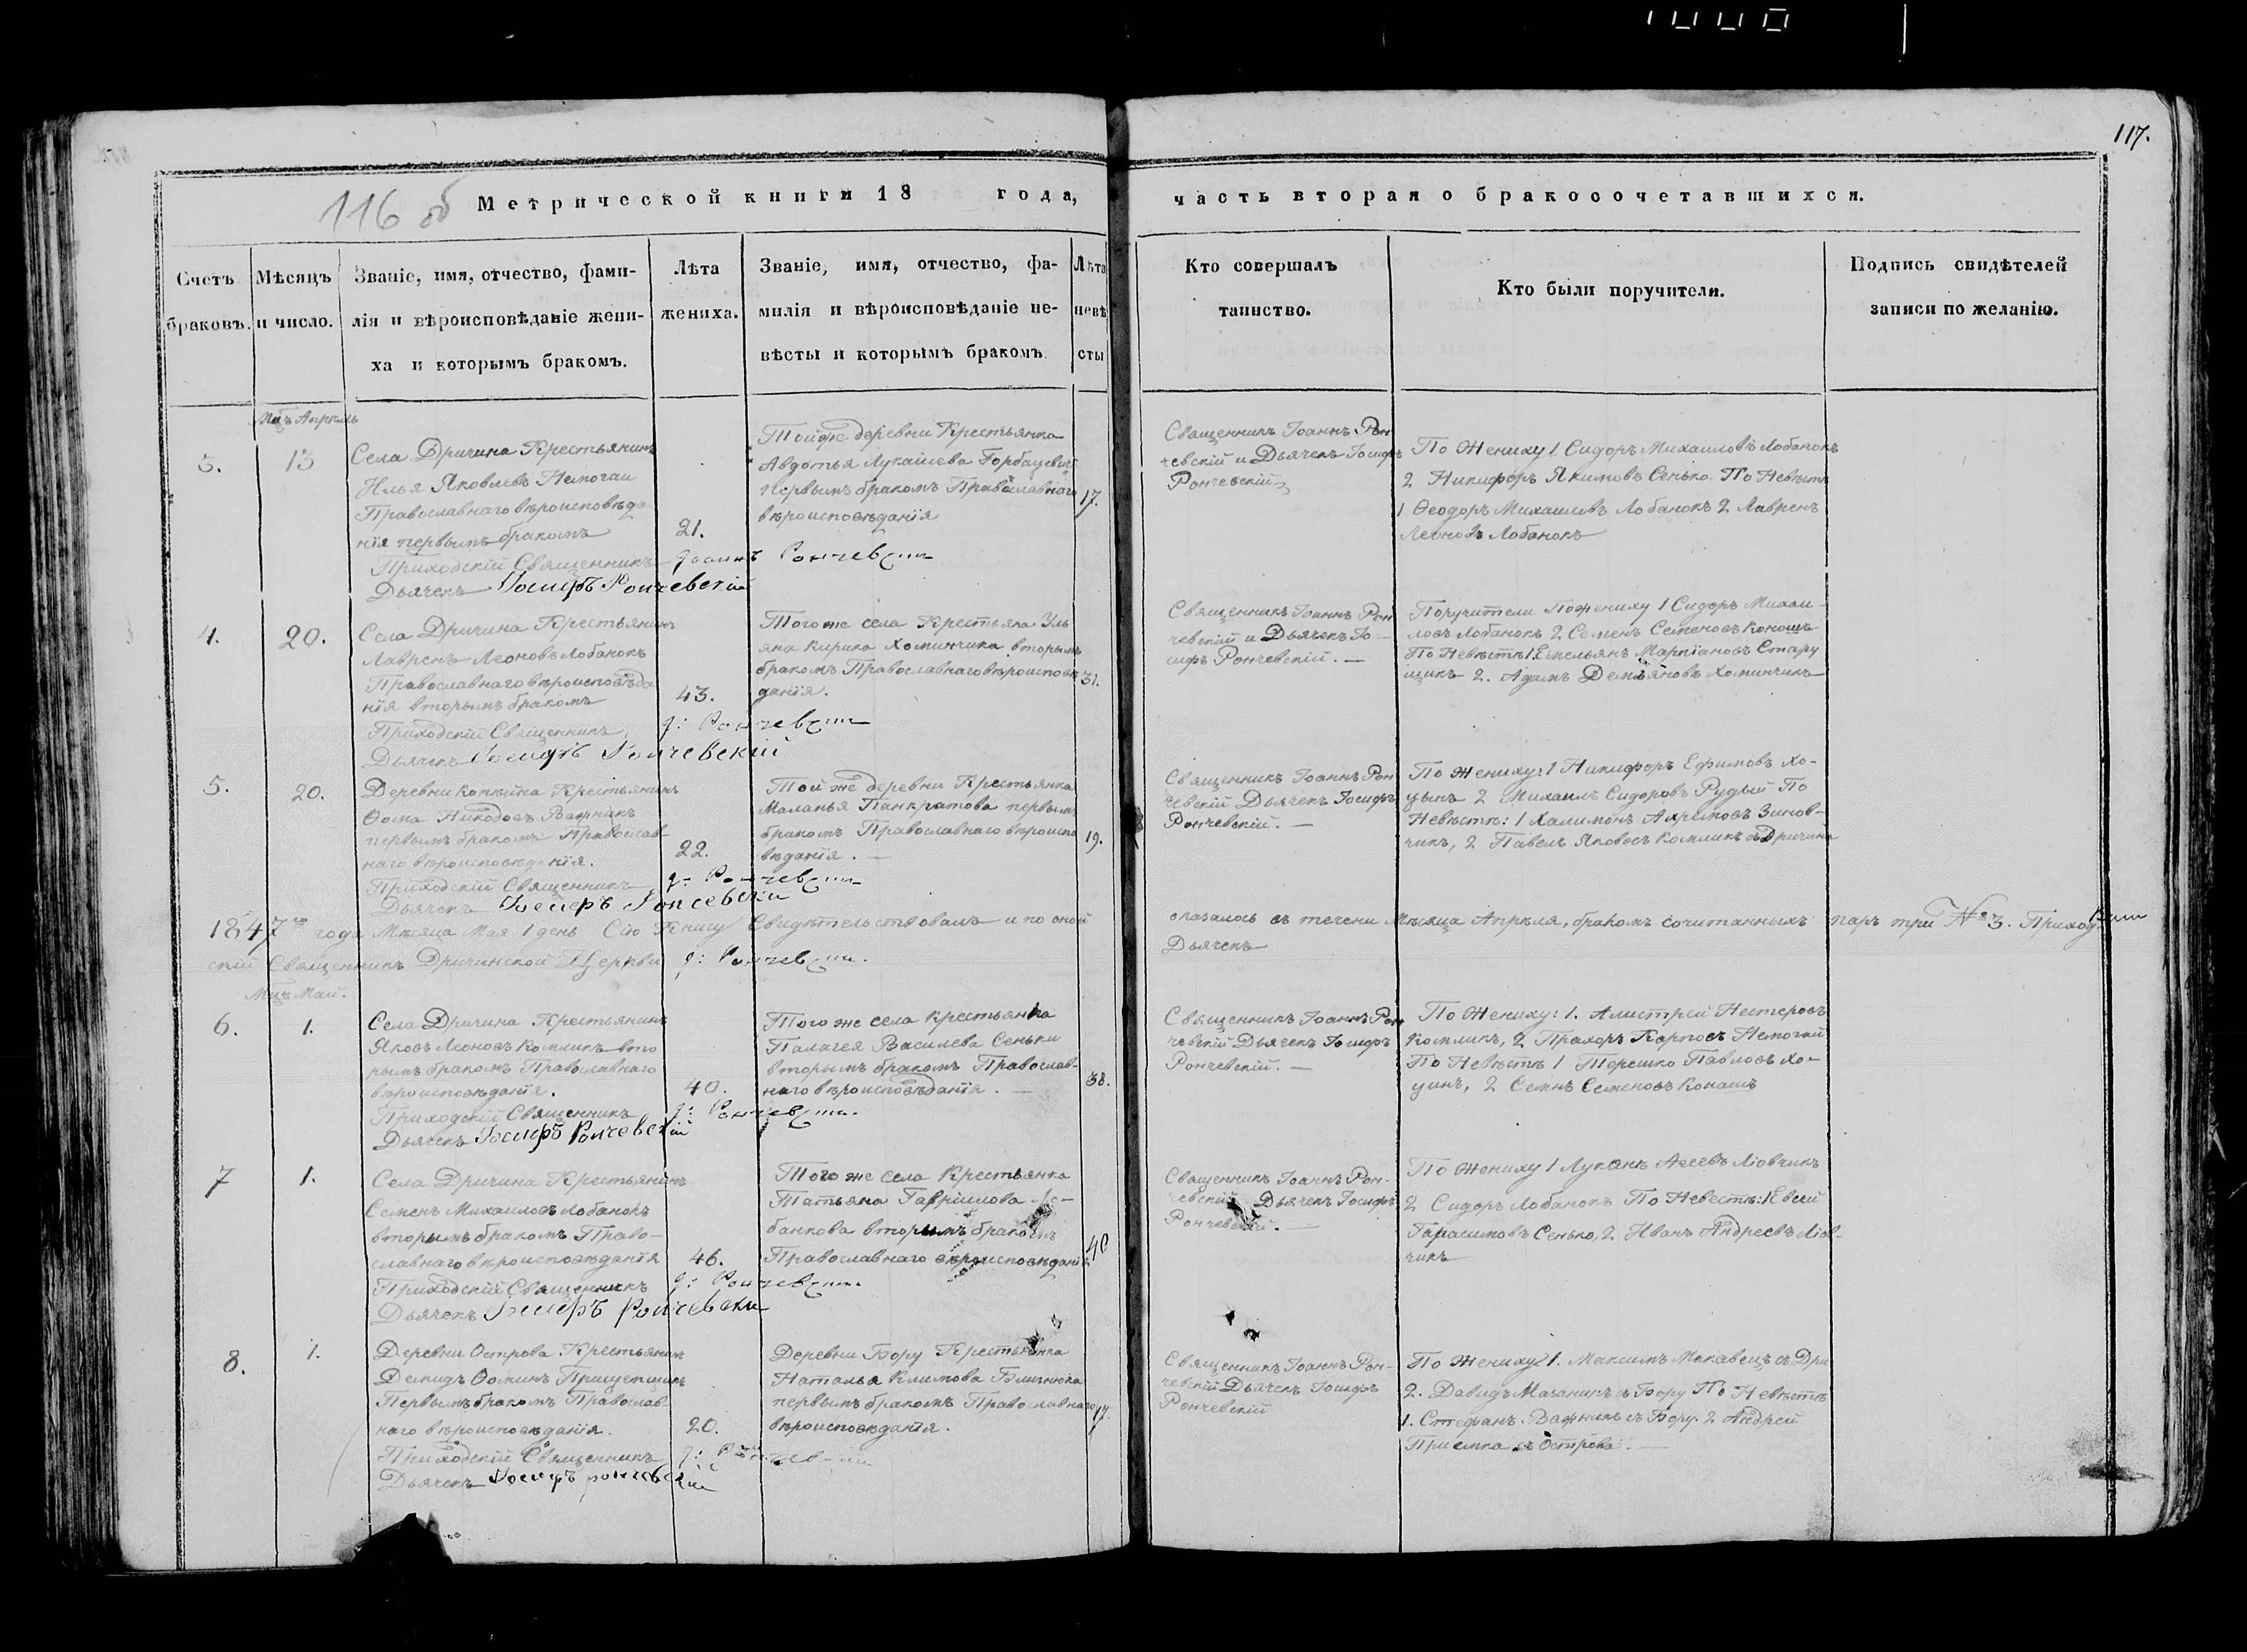 117.
116 об
Метрической книги 18 года,
часть вторая о бракосочетавшихся.
Счетъ браковъ.
Мѣсяцъ и число.
Званіе, имя, отчество, фами-
лія и вѣроисповѣданіе жени-
ха и которымъ бракомъ.
Лѣта
жениха.
Званіе, имя, отчество, фа-
милія и вѣроисповѣданіе не-
вѣсты и которымъ бракомъ
Лѣта
невѣ
сты
Кто совершалъ
таинство.
Кто были поручители.
Подпись свидѣтелей
записи по желанію.
Мцъ Апрѣль
3.
13
Села Дричина Крестьянинъ
Илья Яковлевъ Немогаи
Православнаго вѣроисповѣда
нія первымъ бракомъ
21.
Приходскій Священникъ Іоаннъ Рончевскій
Дьячекъ Іосифъ Рончевскій
Тойже деревни Крестьянка
Авдотья Лукашева Горбацевич
первымъ бракомъ Православнаго
вѣроисповѣданія
17.
Священникъ Іоаннъ Рон
чевскій и Дьячекъ Іосифъ
Рончевскій
По Жениху 1 Сидоръ Михаиловъ Лобанокъ
2 Никифоръ Якимовъ Сенько. По Невѣстѣ
1 Ѳеодоръ Михаиловъ Лобанокъ 2 Лавренъ
Леоновъ Лобанокъ
4.
20.
Села Дричина Крестьянинъ
Лавренъ Леоновъ Лобанокъ
Православнаго вѣроисповѣда
нія вторымъ бракомъ
43.
Приходскій Священникъ І: Рончевскій
Дьячекъ Іосифъ Рончевскій
Того же села Крестьянка Уль
яна Кирика Хоминчика вторымъ
бракомъ Православнаго вѣроисповѣ
данія.
31.
Священникъ Іоаннъ Рон
чевскій и Дьячекъ Іо-
сифъ Рончевскій.
Поручители По жениху 1 Сидоръ Михаи-
ловъ Лобанокъ 2 Семенъ Семеновъ Конашъ
По Невѣстѣ 1 Емельянъ Маркіановъ Стару
щикъ 2. Адамъ Демьяновъ Хоминчикъ
5.
20.
Деревни Крестьянинъ
Ѳома Никодовъ Важникъ
первымъ бракомъ Православ
наго вѣроисповѣданія.
22.
Приходскій Священникъ І: Рончевскій
Дьячекъ Іосифъ Рончевскій
Той же деревни Крестьянка
Маланья Панкратова первымъ
бракомъ Православнаго вѣроиспо
вѣданія.
19.
Священникъ Іоаннъ Рон
чевскій Дьячекъ Іосифъ
Рончевскій.
По Жениху: 1 Никифоръ Ефимовъ Хо-
цынъ 2 Михаилъ Сидоровъ Рудый По
Невѣстѣ: 1 Халимонъ Ахремовъ Зинов-
чикъ, 2 Павелъ Яковъ Комликъ съ Дричина
1847го года Мѣсяца Мая 1 день Сію Книгу Свидѣтельствовалъ и по оной оказалось въ течени Мѣсяца Апрѣля, бракомъ сочитанныхъ паръ три № 3. Приход
скій Священникъ Дричинской Церкви І: Рончевскій.
Дьячекъ
Мцъ Май.
6.
1.
Села Дричина Крестьянинъ
Яковъ Леоновъ Комликъ вто
рымъ бракомъ Православнаго
вѣроисповѣданія.
40.
Приходскій Священникъ І: Рончевскій.
Дьячекъ Іосифъ Рончевскій
Того же села Крестьянка
Палагея Василева Сеньки
вторымъ бракомъ Православ-
наго вѣроисповѣданія.
38.
Священникъ Іоаннъ Рон
чевскій Дьячекъ Іосифъ
Рончевскій.
По Жениху: 1. Алистрей Нестеровъ
Комликъ, 2 Прахоръ Карповъ Немогай
По Невѣстѣ 1 Терешко Павловъ Хо-
цинъ, 2 Семнъ Семеновъ Конашъ
7
1.
Села Дричина Крестьянинъ
Семенъ Михаиловъ Лобанокъ
вторымъ бракомъ Право-
славнаго вѣроисповѣданія
46.
Приходскій Священникъ І: Рончевскій.
Дьячекъ Іосифъ Рончевскій
Того же села Крестьянка
Татьяна Гаврилова Ло-
банкова вторымъ бракомъ
Православнаго вѣроисповѣданія
40
Священникъ Іоаннъ Рон-
чевскій Дьячекъ Іосифъ
Рончевскій.
По Жениху 1 Лукянъ Агеевъ Ліовчикъ
2 Сидоръ Лобанокъ По Невестѣ: 1 Евсей
Гарасимовъ Сенько, 2 Иванъ Андреевъ Ліов-
чикъ
8.
1.
Деревни Острова Крестьянинъ
Демидъ Ѳоминъ Прищепчикъ
Первымъ бракомъ Православ
наго вѣроисповѣданія.
20.
Приходскій Священникъ І: Рончевскій
Дьячекъ Іосифъ Рончевскій
Деревни Бору Крестьянка
Наталья Климова
первымъ бракомъ Православнаго
вѣроисповѣданія.
Священникъ Іоаннъ Рон-
чевскій Дьячекъ Іосифъ
Рончевскій
По Жениху 1. Максимъ Макавецъ съ Дри
2. Давидъ Мазаникъ съ Бору По Невѣстѣ
1. Стефанъ Важникъ съ Бору. 2 Андрей
Приемка съ Острова.